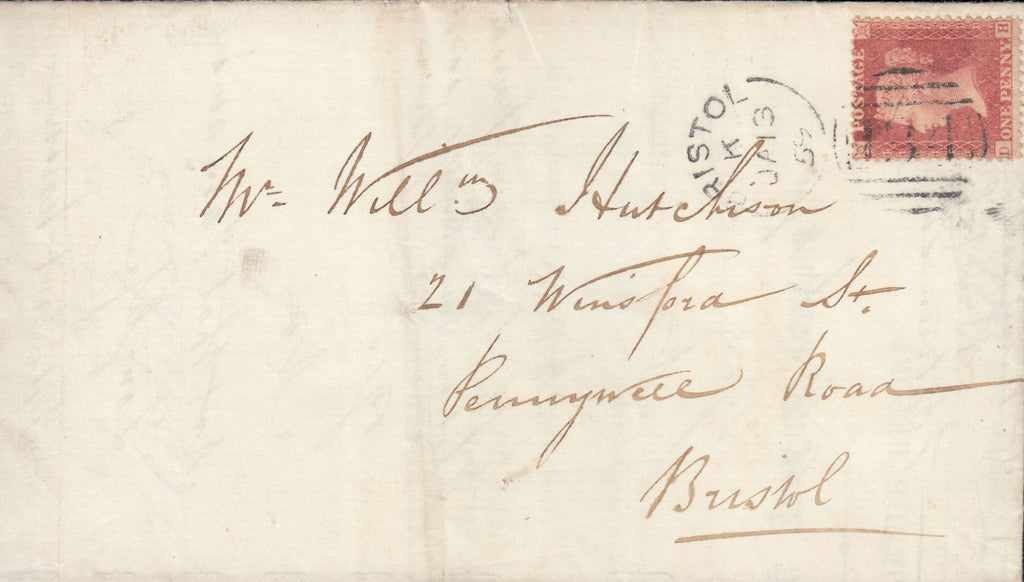 POSTAGE
ONE PENNY
D H
BRISTOL
K
JA 13
59
134
Mr. Willm Hutchison
21 Winsford St.
Pennywell Road
Bristol